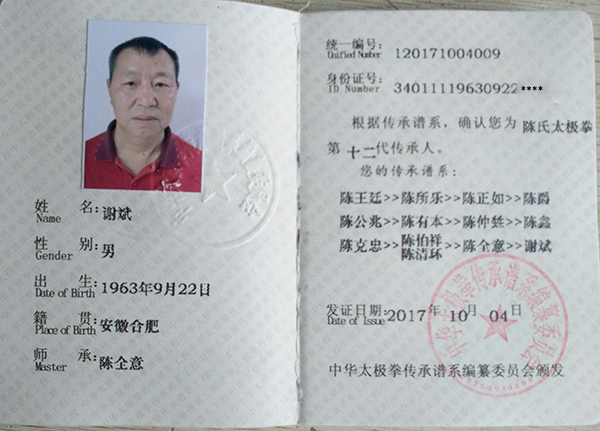 姓 名: 谢斌
Name
性 别: 男
Gender
出 生: 1963年9月22日
Date of Birth
籍 贯: 安徽合肥
Place of Birth
师 承: 陈全意
Master
统一编号: 120171004009
Unified Number
身份证号: 34011119630922****
ID Number
根据传承谱系，确认您为 陈氏太极拳
第 十二 代传承人。
您的传承谱系:
陈王廷>>陈所乐>>陈正如>>陈爵
陈公兆>>陈有本>>陈仲甡>>陈鑫
陈克忠>>陈伯祥 陈清环>>陈全意>>谢斌
发证日期: 2017年 10月 04日
Date of Issue
中华太极拳传承谱系编纂委员会
中华太极拳传承谱系编纂委员会颁发